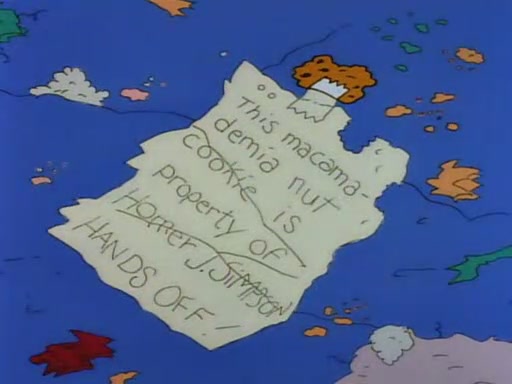 This macama-
demia nut
cookie is
property of
Homer J. Simpson
HANDS OFF!